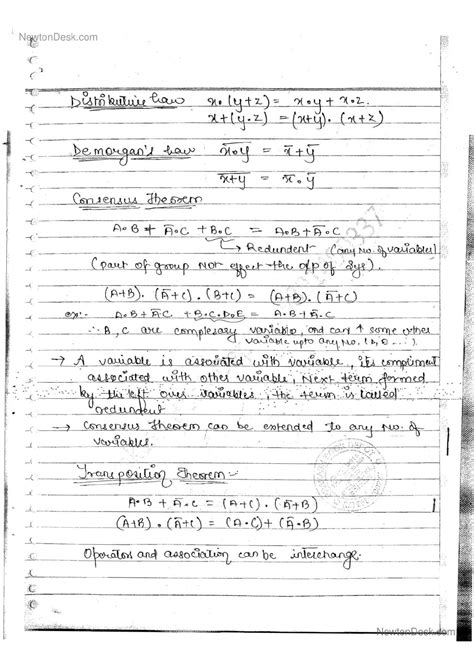 NewtonDesk.com
Distributive Law x.(y+z) = x.y + x.z.
x+(y.z) = (x+y).(x+z)
De morgan's Law x̅.̅y̅ = x̅+y̅
x̅+̅y̅ = x̅.y̅
Consensus Theorem
A.B + A̅.C + B.C = A.B + A̅.C
Redundent (any No. of variables)
(part of group NOT effect the o/p of sys).
(A+B).(A̅+C).(B+C) = (A+B).(A̅+C)
ex:- A.B+A̅C + B.C.D.E = A.B + A̅.C
∴ A, C are complesary variable, and can some other
variable upto any No. (D, E ...).
→ A variable is associated with variable, its compliment
associated with other variable, Next term formed
by the left over variables, the term is called
redundent
→ Consensus Theorem can be extended to any No. of
variables.
Transposition Theorem :-
A.B + A̅.C = (A+C).(A̅+B)
(A+B).(A̅+C) = (A.C)+(A̅.B)
Operators and association can be interchange.
NewtonDesk.com